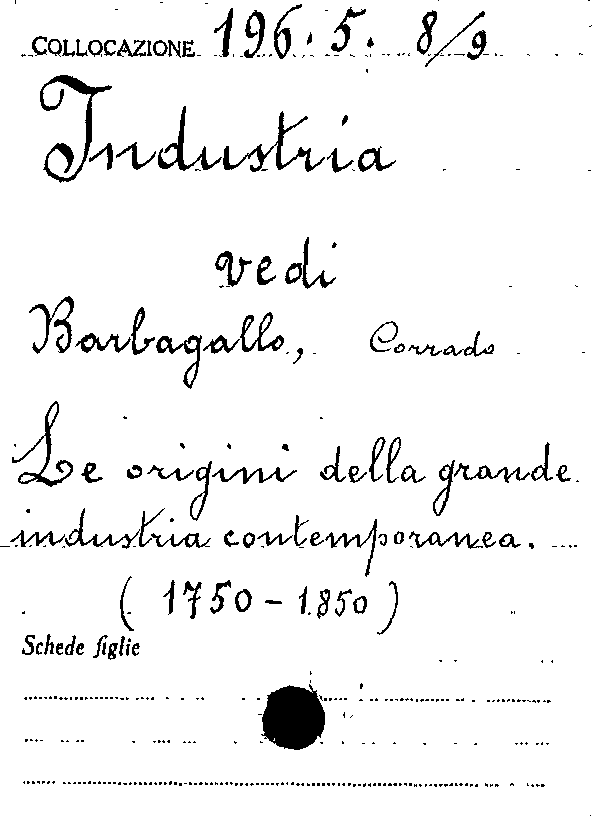 COLLOCAZIONE 196. 5. 8/9
Industria
vedi
Barbagallo, Corrado
Le origini della grande
industria contemporanea.
( 1750 - 1850 )
Schede figlie